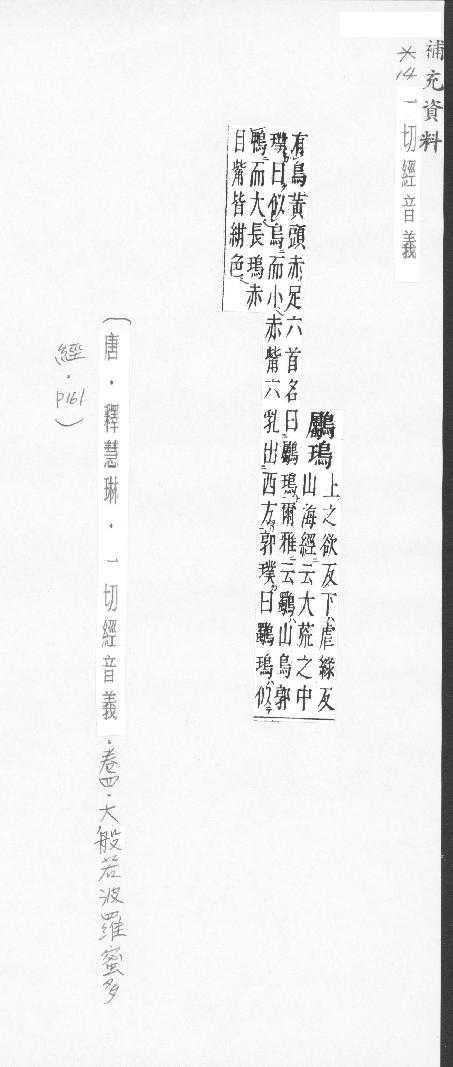 補充資料
*14 一切經音義
鸀鳿 上之欲反下虐綠反
山海經云大荒之中
有鳥黃頭赤足六首名曰鸀鳿爾雅云鸀山烏郭
璞曰似烏而小赤觜穴乳出西方郭璞曰鸀鳿似
鴨而大長鳿赤
目觜皆紺色
(唐・釋慧琳・一切經音義・卷四・大般若波羅蜜多
經・P161)